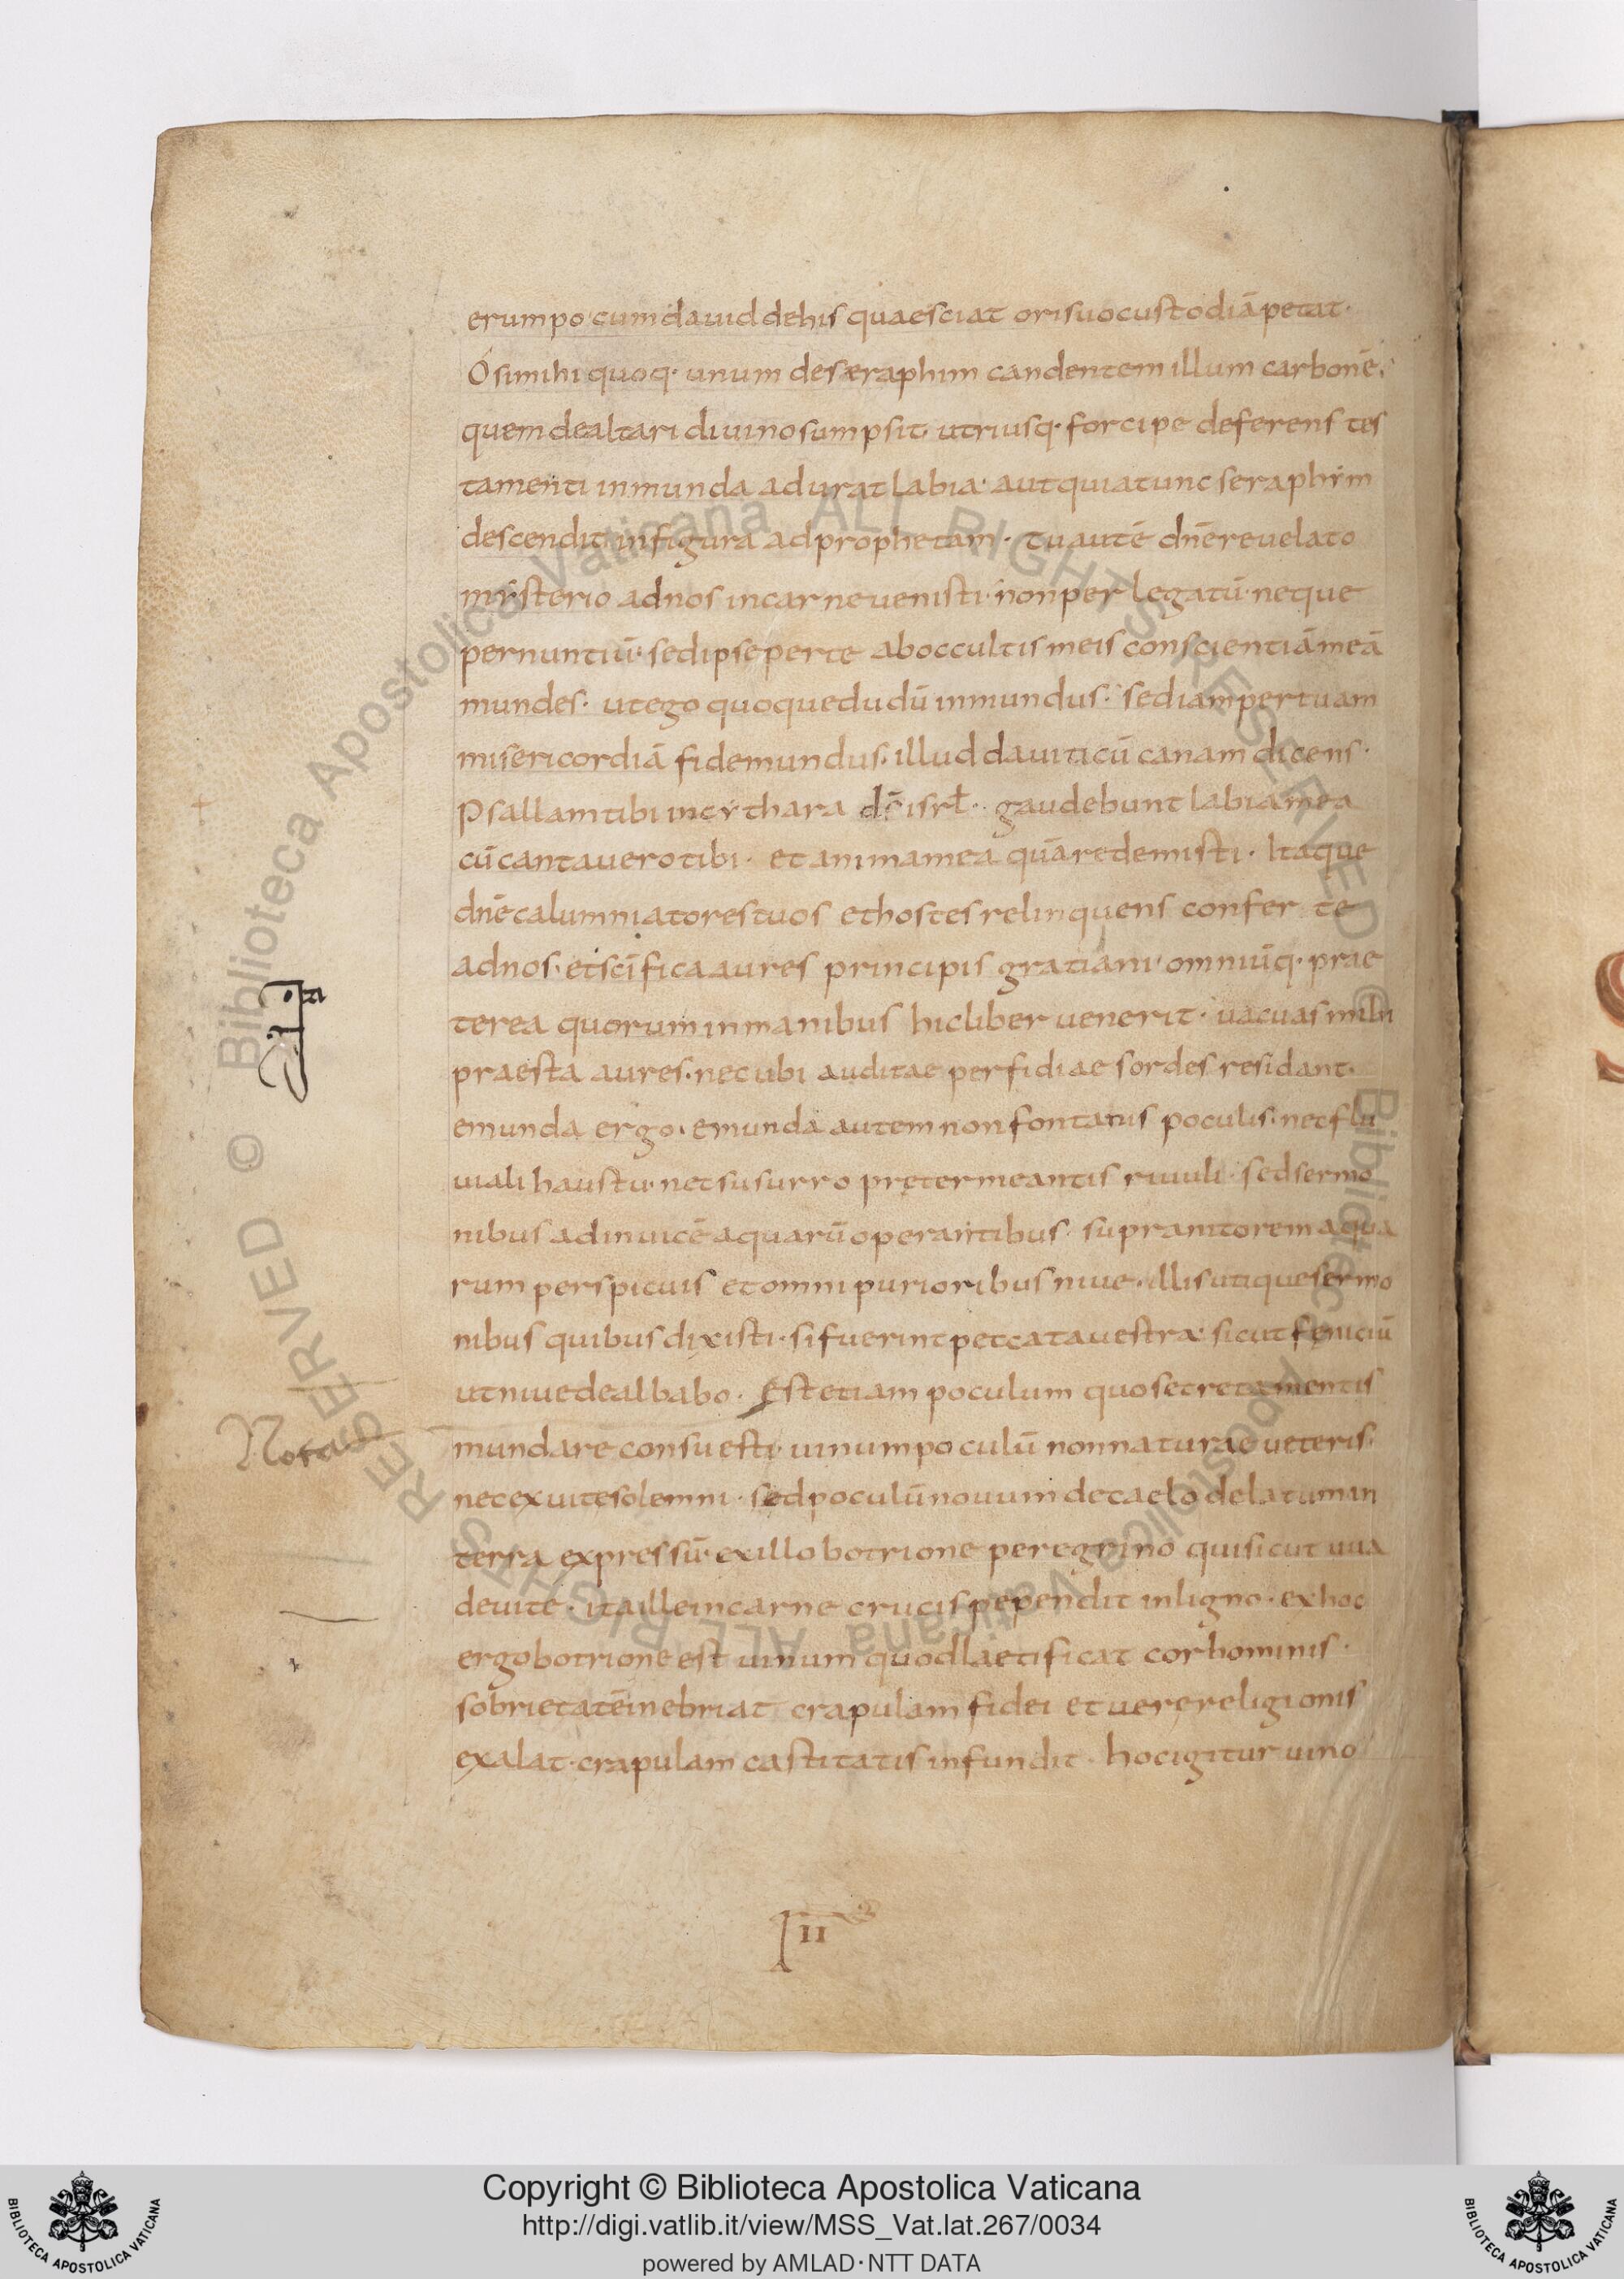 erumpo· cum dauid de his quae sciat ori suo custodiā petat·
O si mihi quoq· unum de seraphim candentem illum carbonē·
quem de altari diuino sumpsit utriusq· forcipe deferens tes
tamenti inmunda adurat labia· aut quia tunc seraphim
descendit in figura ad prophetam· tu autē dn̄e reuelato
mysterio ad nos in carne uenisti· non per legatū· neque
per nuntiū· sed ipse per te ab occultis meis conscientiā meā
mundes· ut ego quoque dudū inmundus· sed iam per tuam
misericordiā fide mundus· illud dauiticū canam dicens·
Psallam tibi in cythara dē isrł· gaudebunt labia mea
cū cantauero tibi· et anima mea quā redemisti· Itaque
dn̄e calumniatores tuos et hostes relinquens confer te
ad nos· et scīfica aures principis gratiani· omniūq· prae
terea quorum in manibus hic liber uenerit· uacuas mihi
praesta aures· necubi auditae perfidiae sordes residant·
emunda ergo· emunda autem non fontanis poculis· nec flu
uiali haustu· nec susurro pretermeantis riuuli· sed sermo
nibus ad inuicē aquarū operantibus· supra nitorem aqua
rum perspicuis et omni purioribus niue· illis utique sermo
nibus quibus dixisti· si fuerint peccata uestra· sicut feniciū
ut niue dealbabo· Est etiam poculum quo secreta mentis
Nota
mundare consuesti· uinum poculū non naturae ueteris·
nec ex uite solemni· sed poculū nouum de caelo delatum in
terra expressū· ex illo botrione peregrino qui sicut uua
de uite· ita ille in carne crucis pependit in ligno· ex hoc
ergo botrione est uinum quod laetificat cor hominis·
sobrietatē inebriat crapulam fidei et uere religionis
exalat· crapulam castitatis infundit· hoc igitur uino
II
Copyright © Biblioteca Apostolica Vaticana
http://digi.vatlib.it/view/MSS_Vat.lat.267/0034
powered by AMLAD·NTT DATA
BIBLIOTECA APOSTOLICA VATICANA
BIBLIOTECA APOSTOLICA VATICANA
Biblioteca Apostolica Vaticana ALL RIGHTS RESERVED ©
Biblioteca Apostolica Vaticana ALL RIGHTS RESERVED ©